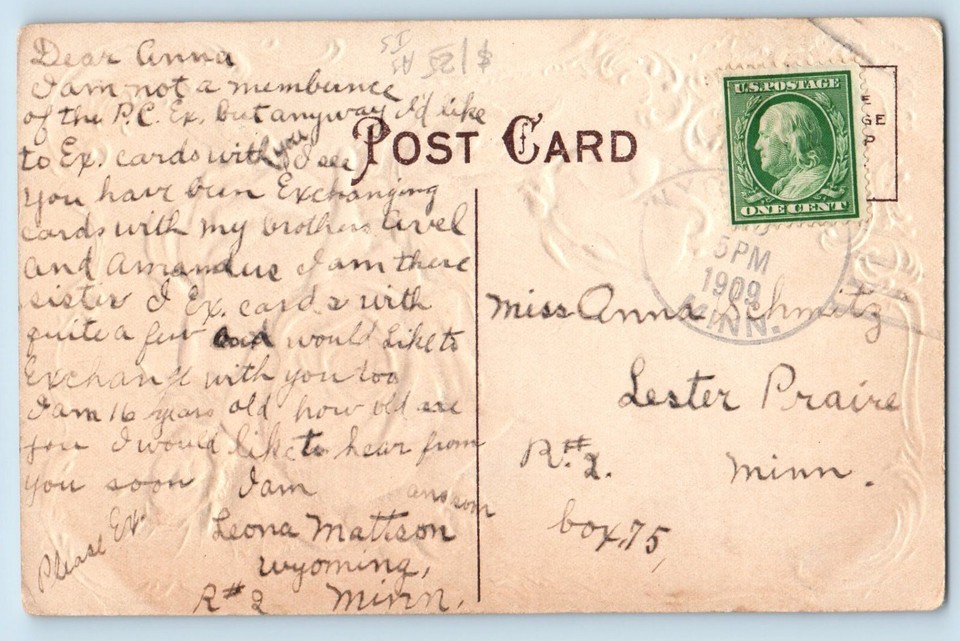 Dear Anna
I am not a membunce
of the P.C. Ex. but anyway I'd like
to Ex. cards with you I see
you have been Exchanging
cards with my brothers Arvel
and Amandus I am there
sister I Ex. cards with
quite a few and would like to
Exchange with you too
I am 16 years old how old are
you I would like to hear from
you soon I am
ans soon
Please Ex.
Leona Mattson
Wyoming,
R#2 Minn.
$125
POST CARD
U.S. POSTAGE
ONE CENT
5PM
1909
MINN.
Miss Anna Schmitz
Lester Praire
R.#2. Minn.
box, 75,